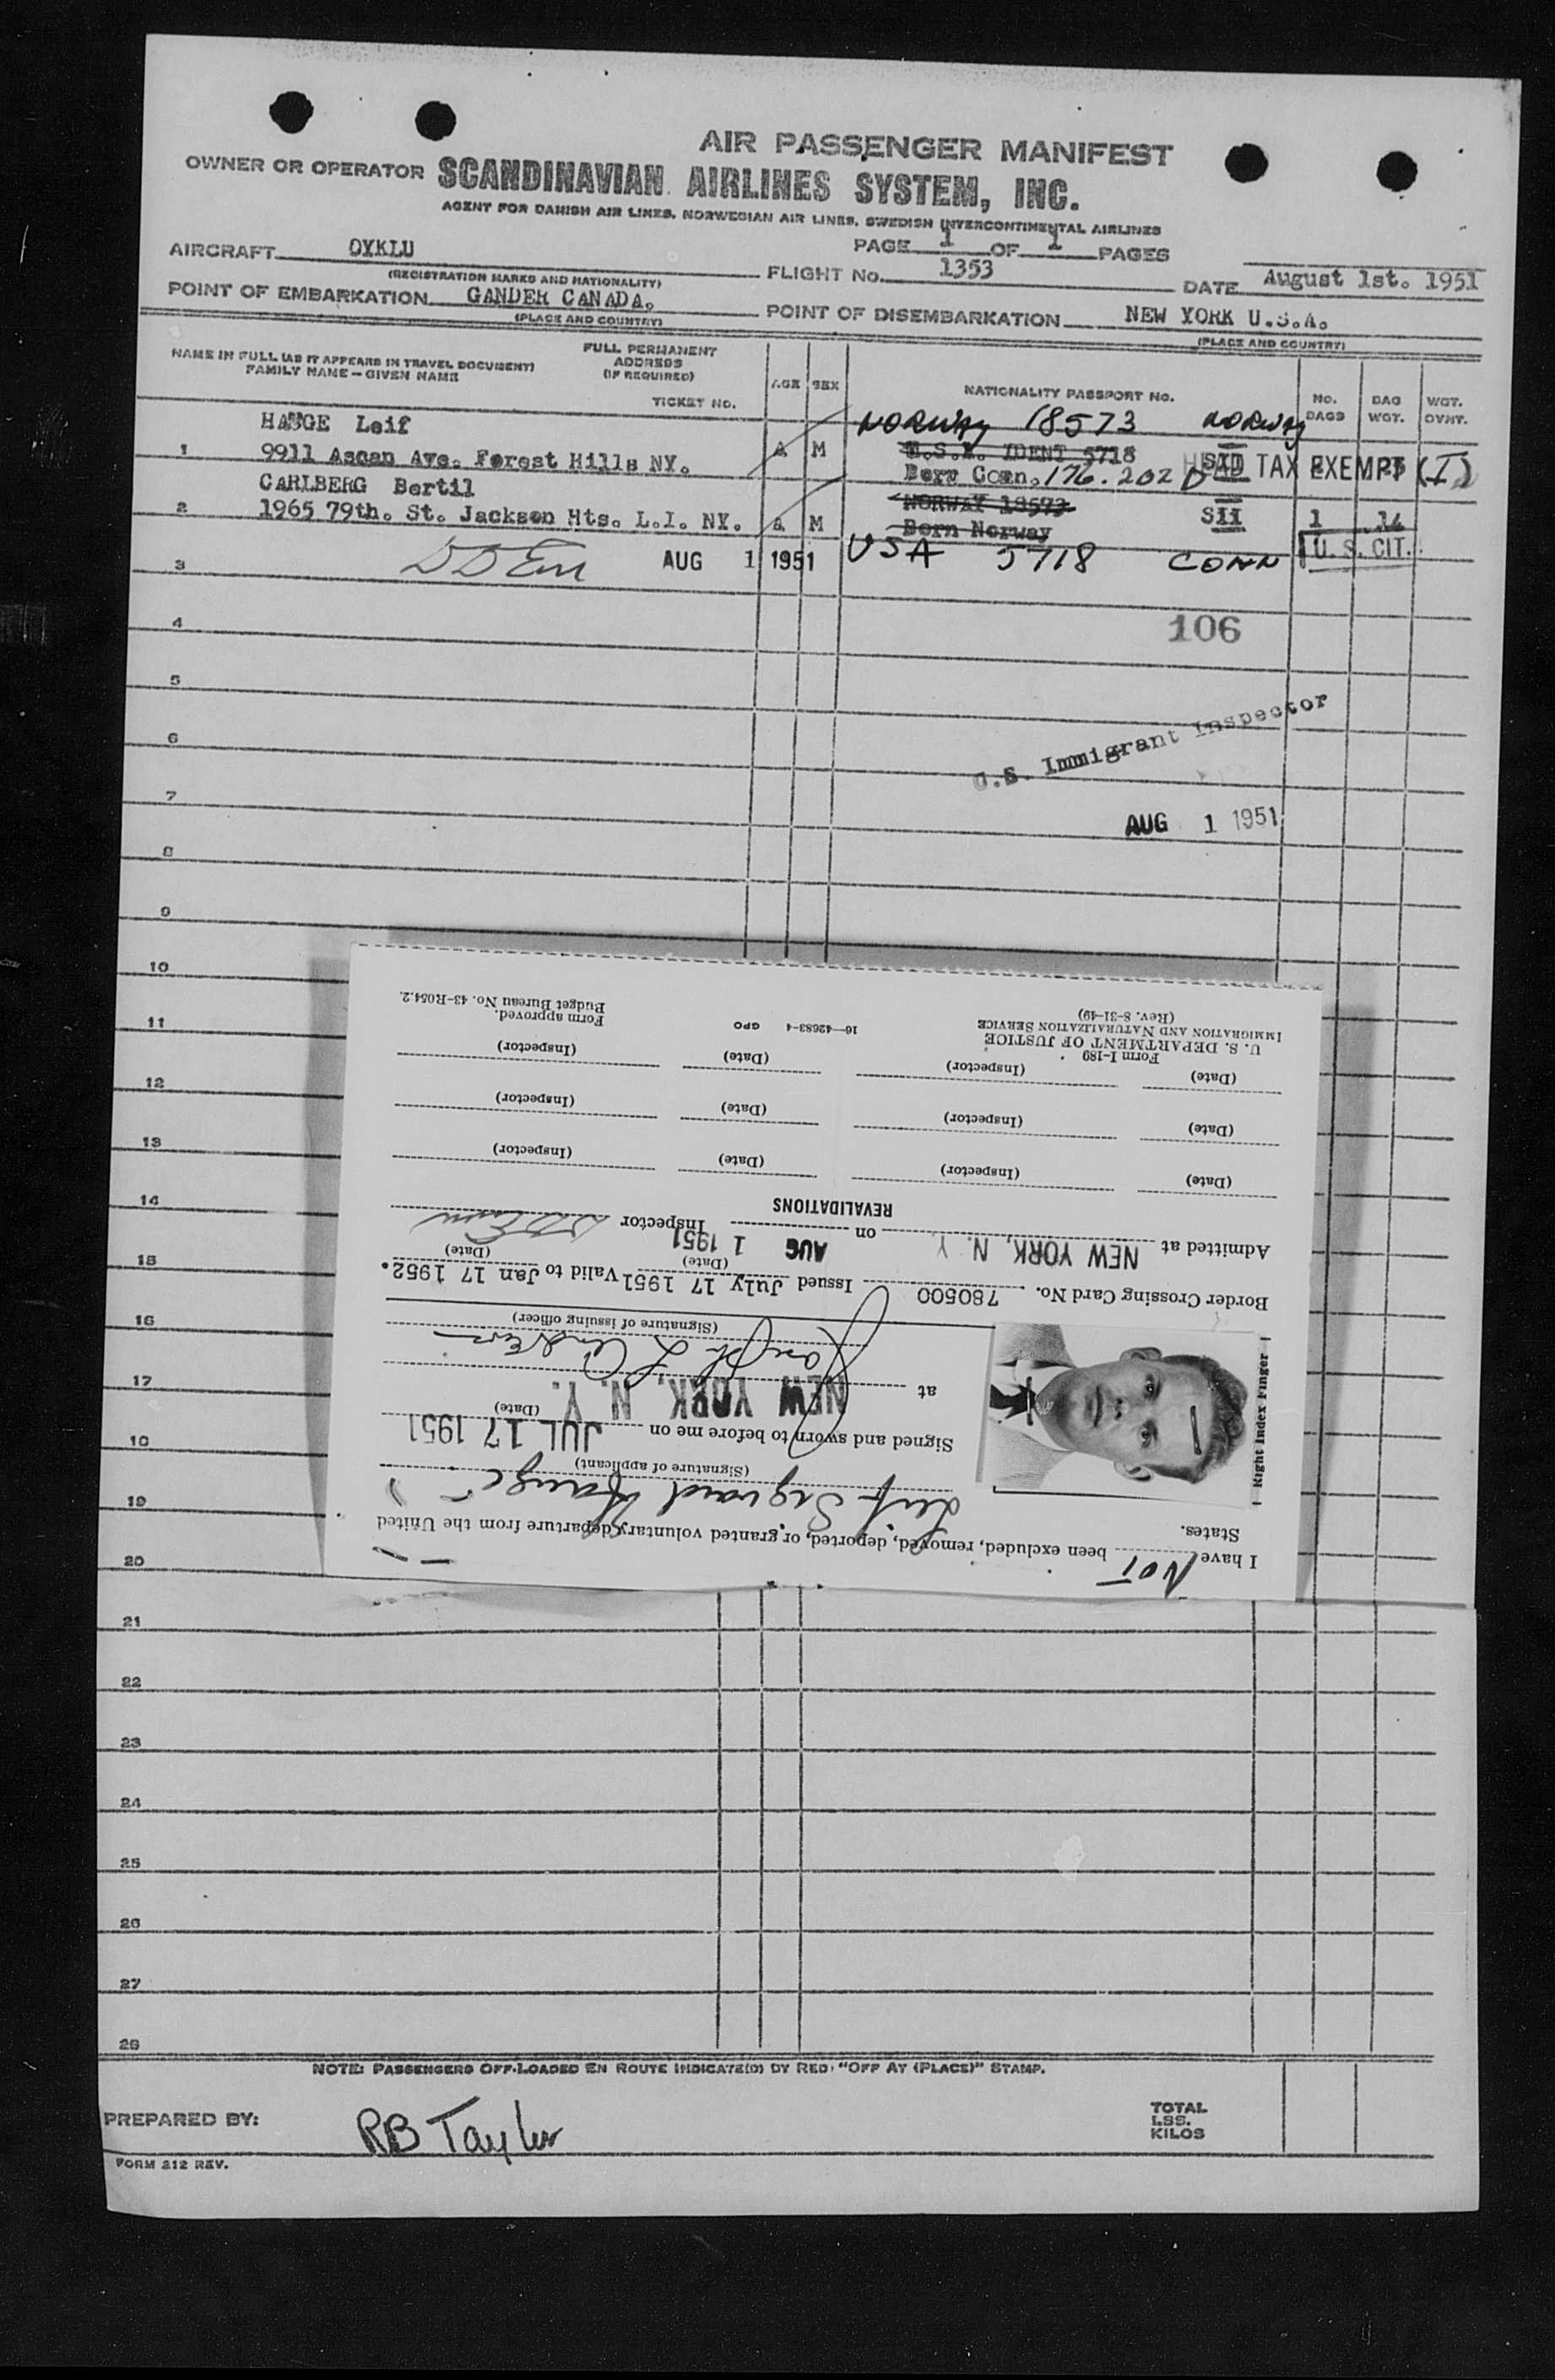 AIR PASSENGER MANIFEST
OWNER OR OPERATOR SCANDINAVIAN AIRLINES SYSTEM, INC.
AGENT FOR DANISH AIR LINES, NORWEGIAN AIR LINES, SWEDISH INTERCONTINENTAL AIRLINES
PAGE 1 OF 1 PAGES
AIRCRAFT OYKLU
(REGISTRATION MARKS AND NATIONALITY)
FLIGHT No. 1353
DATE August 1st. 1951
POINT OF EMBARKATION GANDER CANADA.
(PLACE AND COUNTRY)
POINT OF DISEMBARKATION NEW YORK U.S.A.
(PLACE AND COUNTRY)
NAME IN FULL (AS IT APPEARS IN TRAVEL DOCUMENT)
FAMILY NAME — GIVEN NAME
FULL PERMANENT
ADDRESS
(IF REQUIRED)
TICKET NO.
AGE SEX
NATIONALITY PASSPORT No.
NO. BAGS
BAG WGT.
WGT. OVNT.
HAUGE Leif
NORWAY 18573 NORWAY
1 9911 Ascan Ave. Forest Hills NY. A M
U.S.A. IDENT 5718
Born Conn. 176.202 D
HEAD TAX EXEMPT (I)
CARLBERG Bertil
NORWAY 18573
2 1965 79th. St. Jackson Hts. L.I. NY. A M
Born Norway
SII 1 14
U. S. CIT.
3 AUG 1 1951 USA 5718 CONN
4
106
5
6
U.S. Immigrant Inspector
7
AUG 1 1951
8
9
10
11
12
13
14
15
16
17
18
19
20
I have NOT been excluded, removed, deported, or granted voluntary departure from the United
States.
Leif Sigvard Hauge
(Signature of applicant)
Signed and sworn to before me on JUL 17 1951
(Date)
at NEW YORK, N. Y.
(Signature of issuing officer)
Right Index Finger
Border Crossing Card No. 780500 Issued July 17 1951 Valid to Jan 17 1952.
(Date) (Date)
Admitted at NEW YORK, N. Y. on AUG 1 1951 Inspector
REVALIDATIONS
(Date) (Inspector) (Date) (Inspector)
(Date) (Inspector) (Date) (Inspector)
(Date) (Inspector) (Date) (Inspector)
Form I-189
U. S. DEPARTMENT OF JUSTICE
IMMIGRATION AND NATURALIZATION SERVICE
(Rev. 8-31-49)
16—42683-4 GPO
Form approved.
Budget Bureau No. 43-R054.2.
21
22
23
24
25
26
27
28
NOTE: PASSENGERS OFF-LOADED EN ROUTE INDICATE(D) BY RED "OFF AT (PLACE)" STAMP.
PREPARED BY: RB Taylor
TOTAL
LBS.
KILOS
FORM 212 REV.